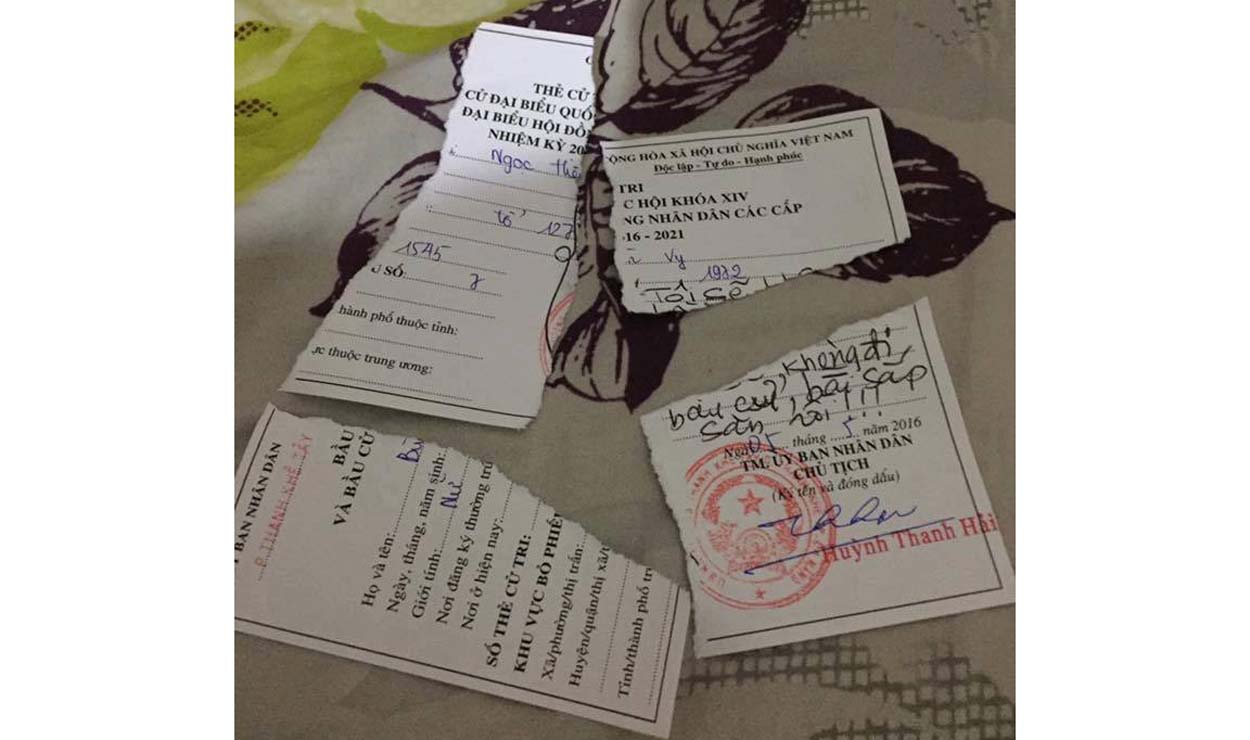 THẺ CỬ
CỬ ĐẠI BIỂU QUỐ
ĐẠI BIỂU HỘI ĐỒ
NHIỆM KỲ 20
Ngọc
tổ 127
1545
SỐ: 7
hành phố thuộc tỉnh:
ực thuộc trung ương:
ỘNG HÒA XÃ HỘI CHỦ NGHĨA VIỆT NAM
Độc lập - Tự do - Hạnh phúc
TRI
C HỘI KHÓA XIV
NG NHÂN DÂN CÁC CẤP
16 - 2021
Vy
1972
Tôi sẽ
không đi
bầu cử, bài sắp
sẵn rồi !!!
Ngày 05 tháng 5 năm 2016
TM. ỦY BAN NHÂN DÂN
CHỦ TỊCH
(Ký tên và đóng dấu)
Huỳnh Thanh Hải
BAN NHÂN DÂN
P. THANH KHÊ TÂY
BẦU
VÀ BẦU CỬ
Họ và tên: Bù
Ngày, tháng, năm sinh:
Giới tính: Nữ
Nơi đăng ký thường trú
Nơi ở hiện nay:
SỐ THẺ CỬ TRI:
KHU VỰC BỎ PHIẾ
Xã/phường/thị trấn:
Huyện/quận/thị xã/t
Tỉnh/thành phố tr